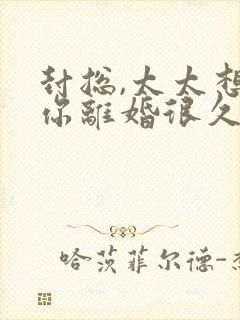 封总,太太想
你離婚很久
哈茨菲尔德-杰